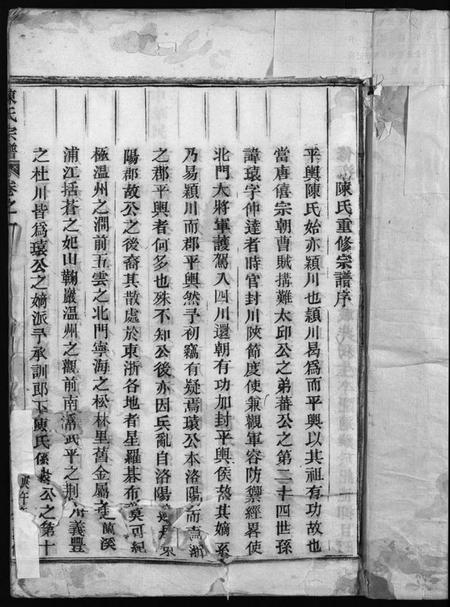 陳氏重修宗譜序
平輿陳氏始亦穎川也穎川曷為而平輿以其祖有功故也
當唐僖宗朝曹賊搆難太邱公之弟蕃公之第二十四世孫
諱瓌字仲達者時官封川陝節度使兼觀軍容防禦經畧使
北門大將軍護駕入四川還朝有功加封平輿侯故其嫡系
乃易穎川而郡平輿然予初竊有疑焉瓌公本洛陽而
之郡平輿者何多也殊不知公後亦因兵亂自洛陽
陽郡故公之後裔其散處於東浙各地者星羅棊布莫可紀
極溫州之澗前五雲之北門寧海之松林里舊金屬蘭溪
浦江括蒼之妃山鞠巖溫州之觀前南武平之荆川義豐
之杜川皆為瓌公之嫡派予承訓郎下陳氏係公之第十
陳氏宗譜
卷之一